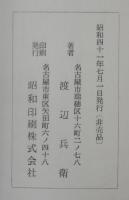 昭和四十一年七月一日発行(非売品)
名古屋市瑞穂区十六町二ノ七八
著者 渡辺兵衛
名古屋市東区矢田町六ノ四十八
印刷発行 昭和印刷株式会社